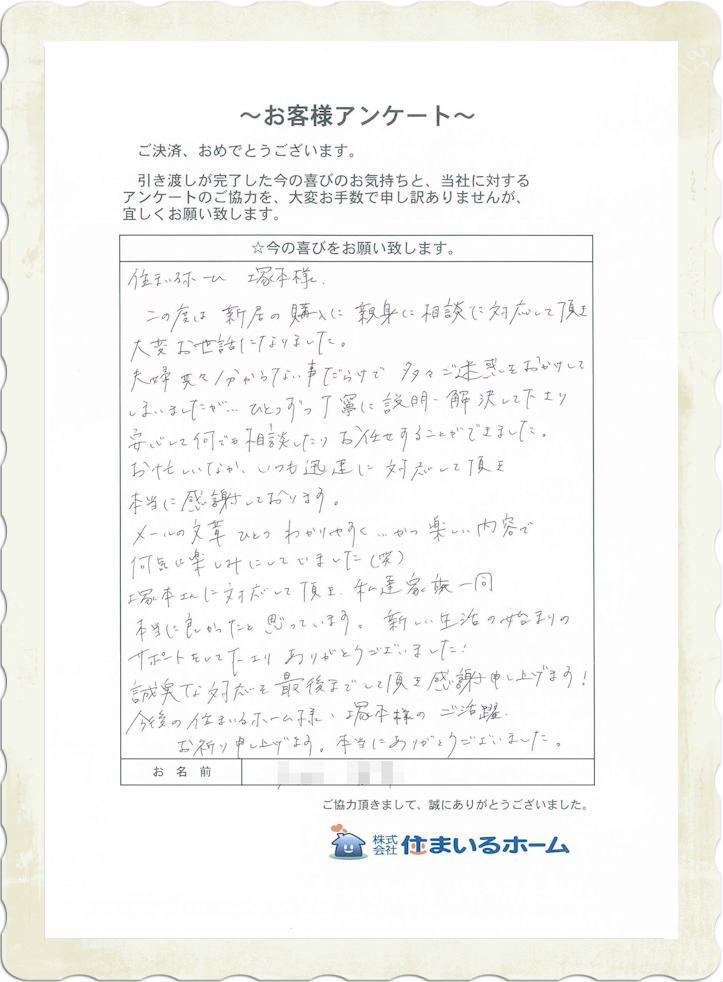 ～お客様アンケート～
ご決済、おめでとうございます。
引き渡しが完了した今の喜びのお気持ちと、当社に対する
アンケートのご協力を、大変お手数で申し訳ありませんが、
宜しくお願い致します。
☆今の喜びをお願い致します。
住まいるホーム 塚本様
この度は新居の購入に親身に相談に対応して頂き
大変お世話になりました。
夫婦共々分からない事だらけで多々ご迷惑をおかけして
しまいましたが…ひとつずつ丁寧に説明・解決して下さり
安心して何でも相談したりお任せすることができました。
お忙しいなか、いつも迅速に対応して頂き
本当に感謝しております。
メールの文章ひとつわかりやすく…かつ楽しい内容で
何気に楽しみにしてました(笑)
塚本さんに対応して頂き、私達家族一同
本当に良かったと思っています。新しい生活の始まりの
サポートをして下さりありがとうございました！
誠実な対応を最後までして頂き感謝申し上げます！
今後の住まいるホーム様、塚本様のご活躍
お祈り申し上げます。本当にありがとうございました。
お名前
ご協力頂きまして、誠にありがとうございました。
株式会社 住まいるホーム